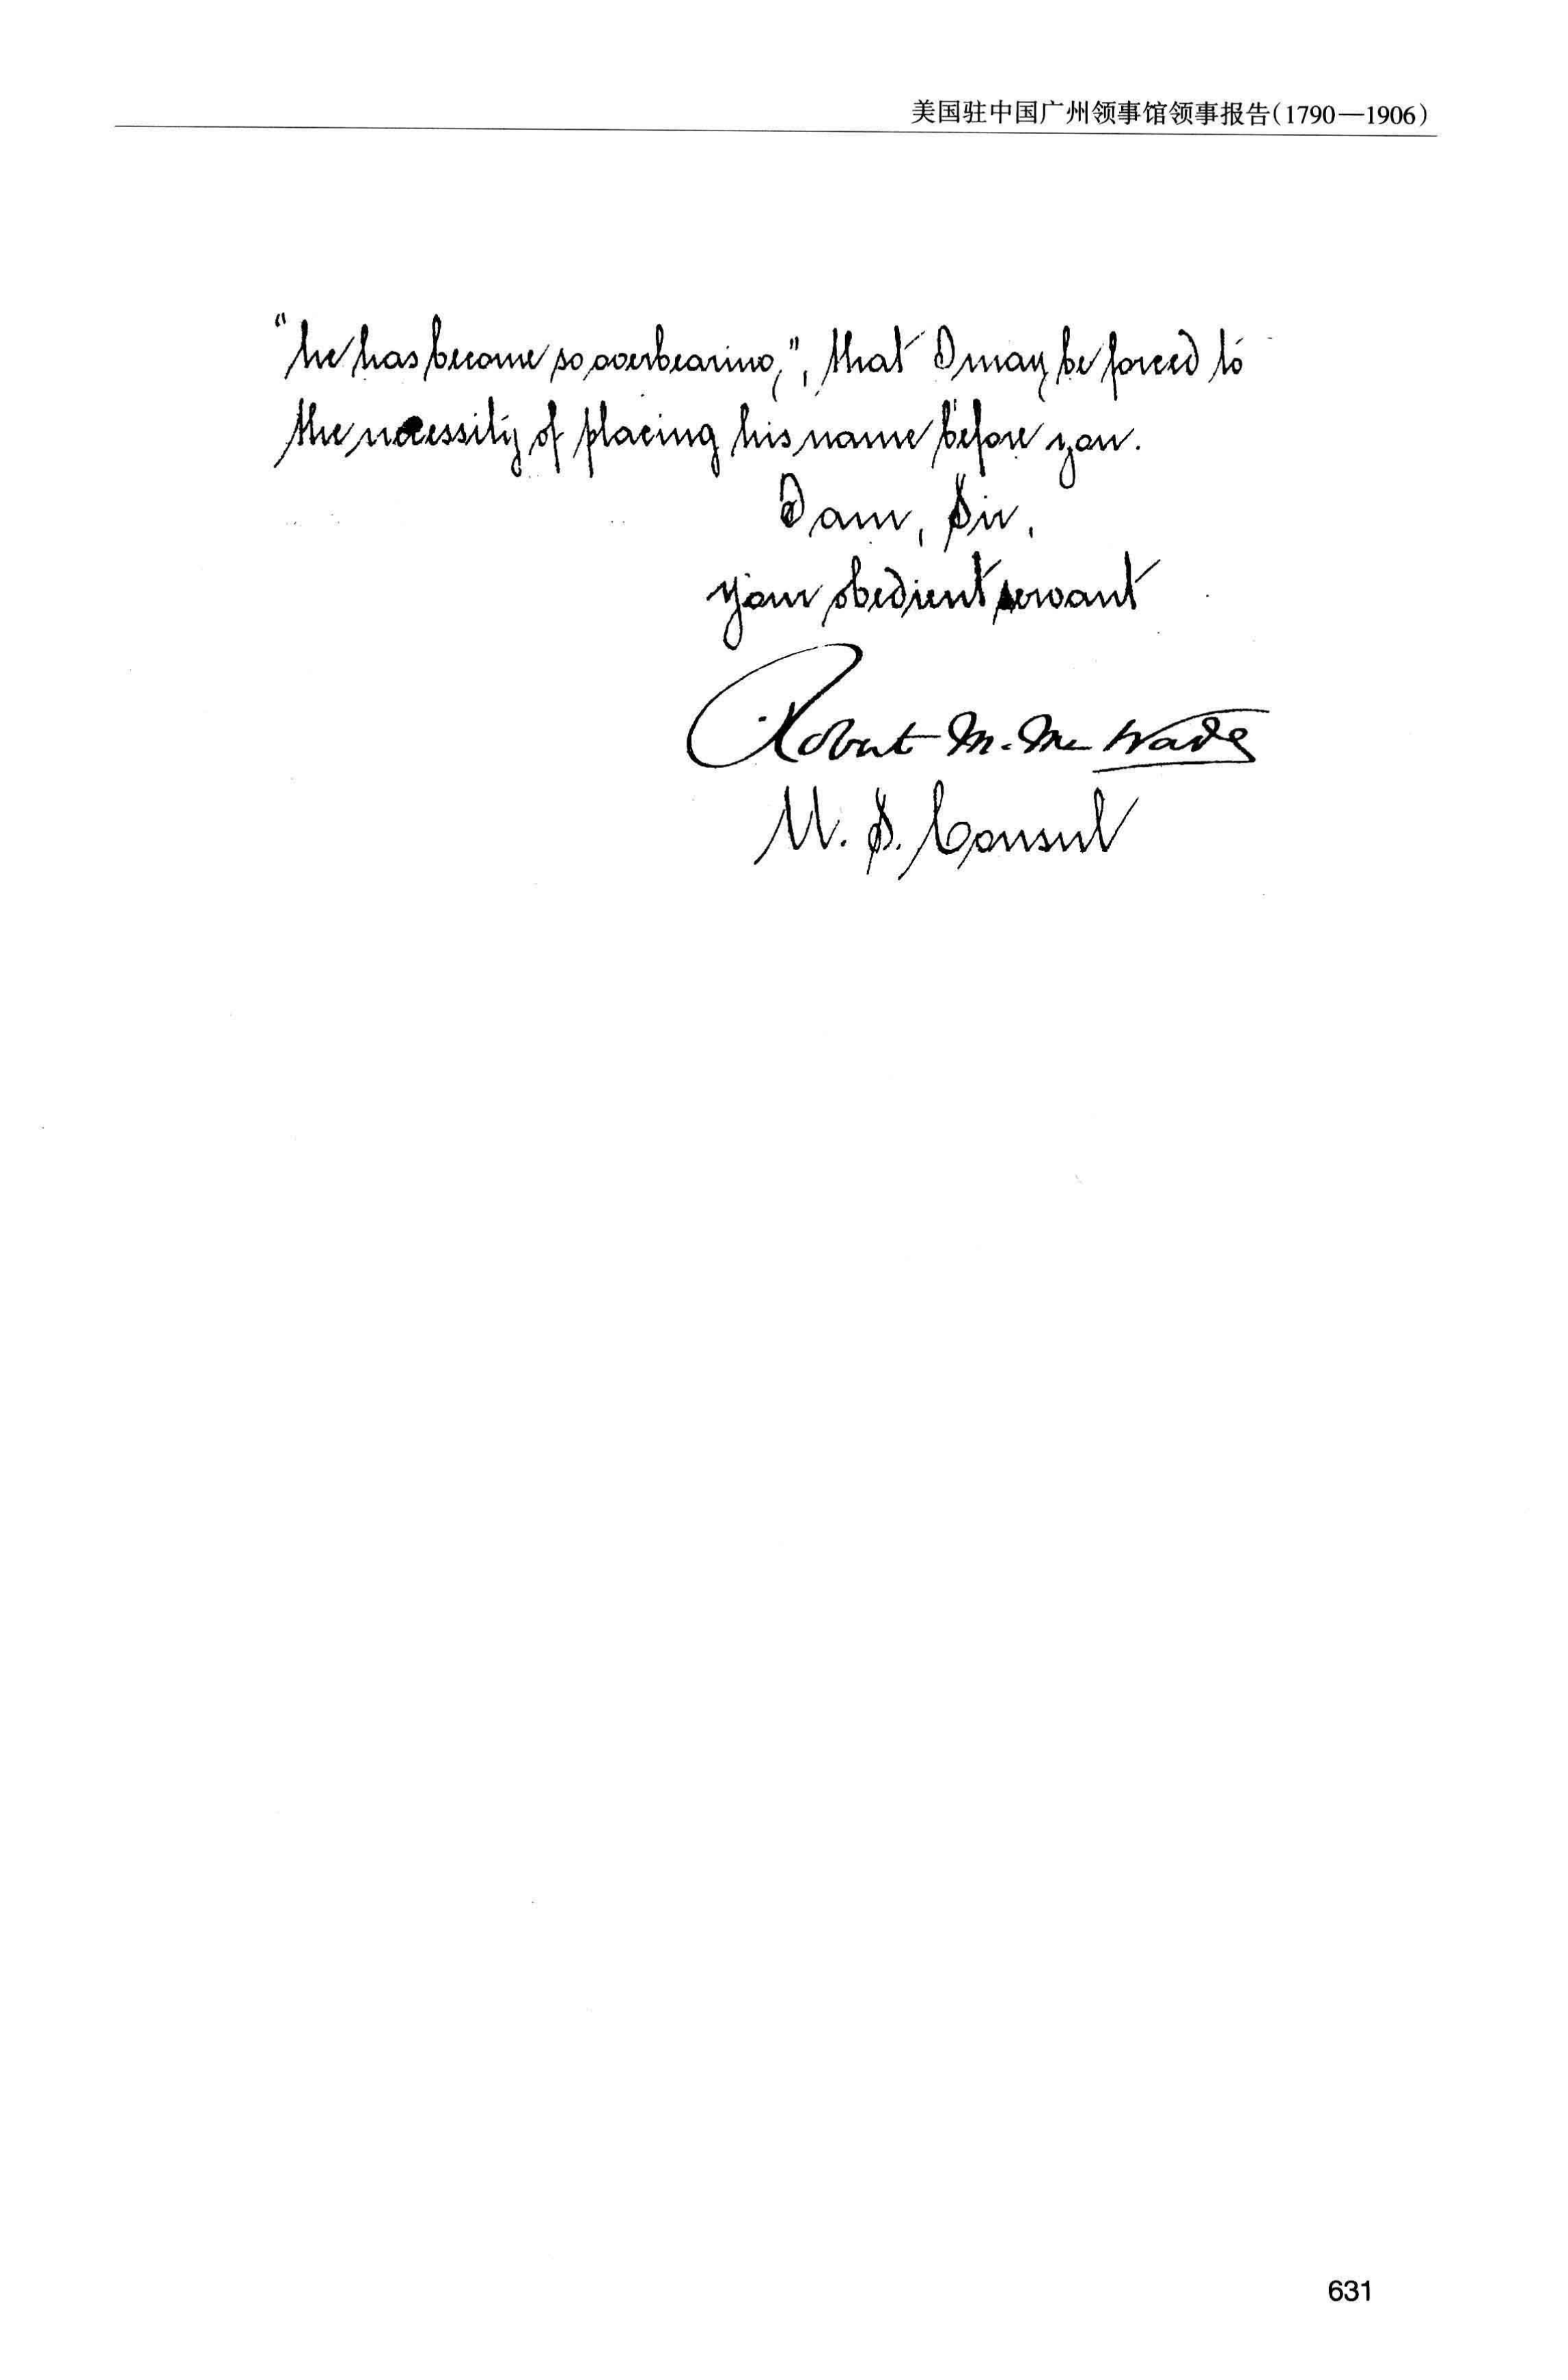 美国驻中国广州领事馆领事报告(1790—1906)
"he has become so overbearing,", that I may be forced to
the necessity of placing his name before you.
I am, Sir,
your obedient servant
Robert M. McWade
U. S. Consul
631